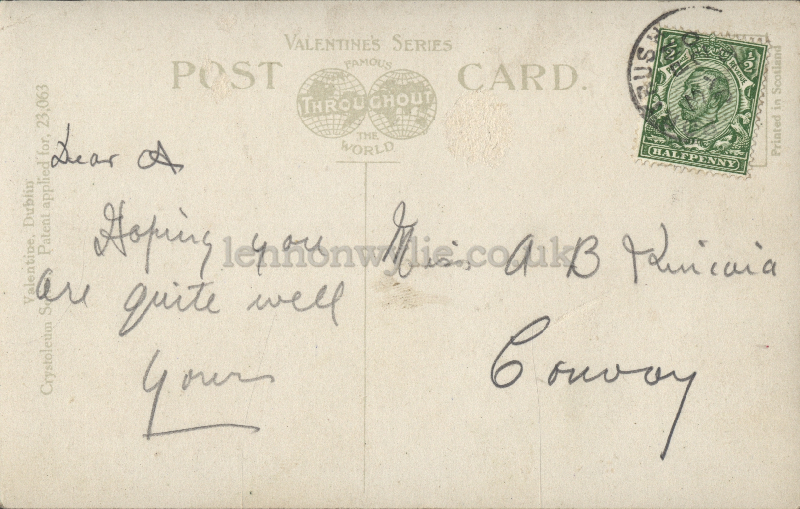 VALENTINE'S SERIES
POST CARD.
FAMOUS
THROUGHOUT
THE
WORLD
½
HALFPENNY
Printed in Scotland
Valentine, Dublin
Crystoleum Patent applied for, 23,063
Dear A
Hoping you
are quite well
Yours
Miss A B Kincaid
Convoy
lennonwylie.co.uk